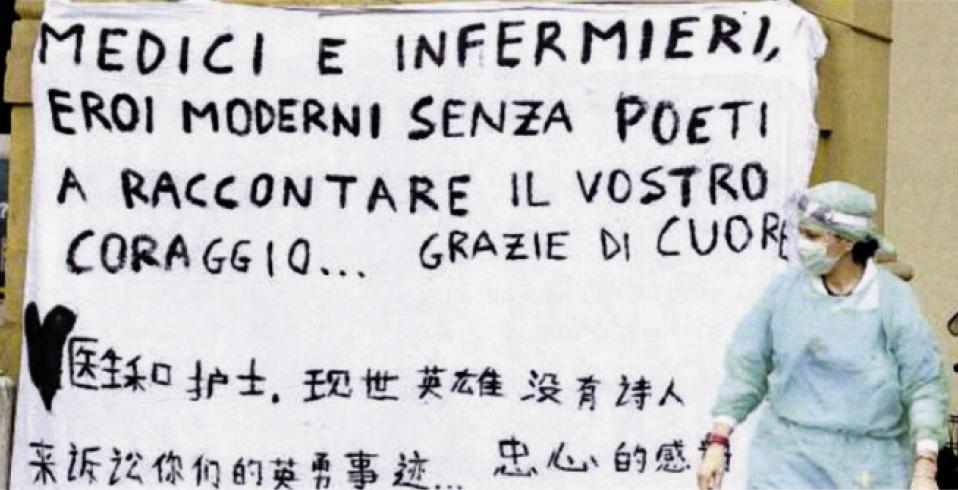 MEDICI E INFERMIERI,
EROI MODERNI SENZA POETI
A RACCONTARE IL VOSTRO
CORAGGIO... GRAZIE DI CUORE
医生和护士.现世英雄没有诗人
来诉讼你们的英勇事迹... 忠心的感